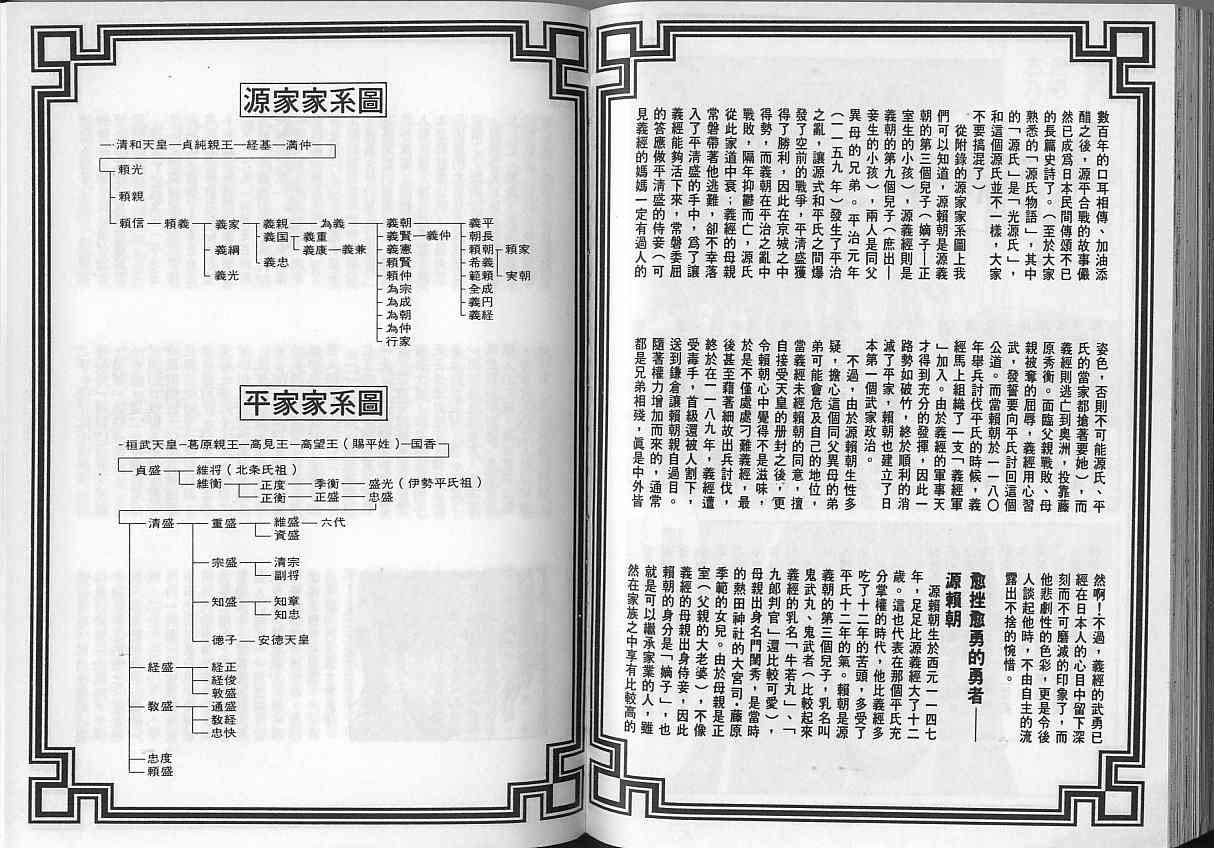 數百年的口耳相傳、加油添
醋之後，源平合戰的故事儼
然已成為日本民間傳頌不已
的長篇史詩了。（至於大家
熟悉的「源氏物語」，其中
的「源氏」是「光源氏」，
和這個源氏並不一樣，大家
不要搞混了）
從附錄的源家家系圖上我
們可以知道，源賴朝是源義
朝的第三個兒子（嫡子—正
室生的小孩），源義經則是
義朝的第九個兒子（庶出—
妾生的小孩），兩人是同父
異母的兄弟。平治元年
（一一五九年）發生了平治
之亂，讓源式和平氏之間爆
發了空前的戰爭，平清盛獲
得了勝利，因此在京城之中
得勢，而義朝在平治之亂中
戰敗，隔年抑鬱而亡，源氏
從此家道中衰；義經的母親
常磐帶著他逃難，卻不幸落
入了平清盛的手中，為了讓
義經能夠活下來，常磐委屈
的答應做平清盛的侍妾（可
見義經的媽媽一定有過人的
姿色，否則不可能源氏、平
氏的當家都搶著要她），而
義經則逃亡到奧洲，投靠藤
原秀衡。面臨父親戰敗、母
親被奪的屈辱，義經用心習
武，發誓要向平氏討回這個
公道。而當賴朝於一一八〇
年舉兵討伐平氏的時候，義
經馬上組織了一支「義經軍
」加入。由於義經的軍事天
才得到充分的發揮，因此一
路勢如破竹，終於順利的消
滅了平家，賴朝也建立了日
本第一個武家政治。
不過，由於源賴朝生性多
疑，擔心這個同父異母的弟
弟可能會危及自己的地位，
當義經未經賴朝的同意，擅
自接受天皇的册封之後，更
令賴朝心中覺得不是滋味，
於是不僅處處刁難義經，最
後甚至藉著細故出兵討伐，
終於在一一八九年，義經遭
受毒手，首級還被人割下，
送到鎌倉讓賴朝親自過目。
隨著權力增加而來的，通常
都是兄弟相殘，真是中外皆
然啊！不過，義經的武勇已
經在日本人的心目中留下深
刻而不可磨滅的印象了，而
他悲劇性的色彩，更是令後
人談起他時，不由自主的流
露出不捨的惋惜。
愈挫愈勇的勇者——
源賴朝
源賴朝生於西元一一四七
年，足足比源義經大了十二
歲。這也代表在那個平氏充
分掌權的時代，他比義經多
吃了十二年的苦頭，多受了
平氏十二年的氣。賴朝是源
義朝的第三個兒子，乳名叫
鬼武丸、鬼武者（比較起來
義經的乳名「牛若丸」、「
九郎判官」還比較可愛），
母親出身名門閨秀，是當時
的熱田神社的大宮司・藤原
季範的女兒。由於母親是正
室（父親的大老婆），不像
義經的母親出身侍妾，因此
賴朝的身分是「嫡子」，也
就是可以繼承家業的人，雖
然在家族之中享有比較高的
源家家系圖
清和天皇—貞純親王—経基—満仲
頼光
頼親
頼信—頼義—義家—義親—為義—義朝—義平
義国—義重 義賢—義仲 朝長
義綱 義康—義兼 義憲 頼朝—頼家
義忠 頼賢 希義
義光 頼仲 範頼 実朝
為宗 全成
為成 義円
為朝 義経
為仲
行家
平家家系圖
桓武天皇—葛原親王—高見王—高望王（賜平姓）—国香
貞盛—維将（北条氏祖）
維衡—正度—季衡—盛光（伊勢平氏祖）
正衡—正盛—忠盛
清盛—重盛—維盛—六代
資盛
宗盛—清宗
副将
知盛—知章
知忠
徳子—安徳天皇
経盛—経正
経俊
敦盛
教盛—通盛
教経
忠快
忠度
頼盛